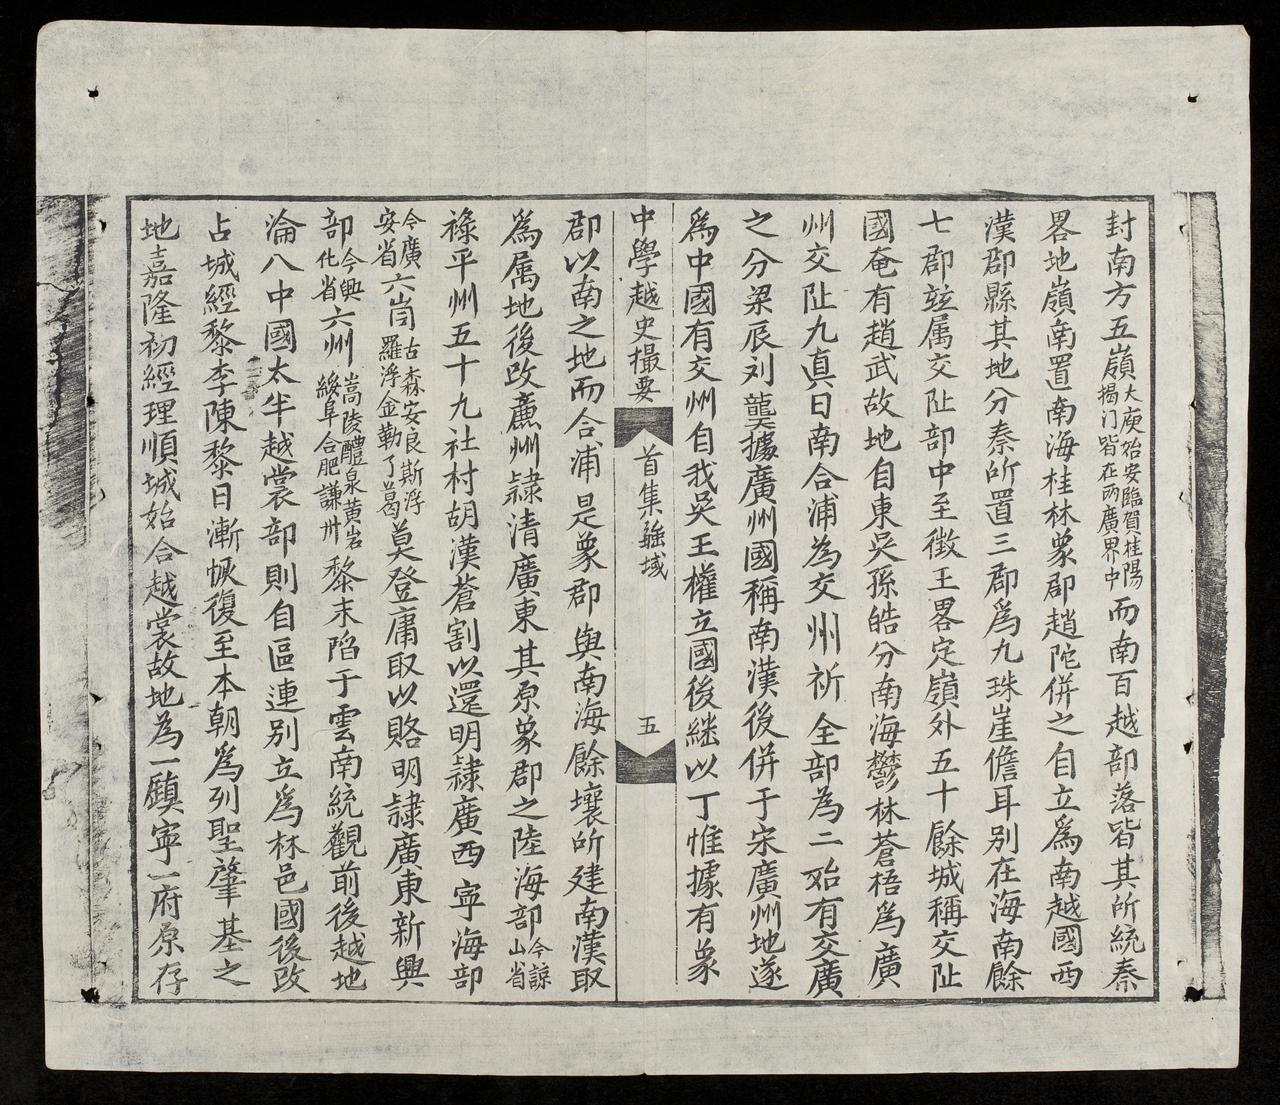 封南方五嶺大庾始安臨賀桂陽揭门皆在兩廣界中而南百越部落皆其所統秦
畧地嶺南置南海桂林象郡趙陀併之自立爲南越國西
漢郡縣其地分秦所置三郡爲九珠崖儋耳別在海南餘
七郡竝属交阯部中至徵王畧定嶺外五十餘城稱交阯
國奄有趙武故地自東吳孫皓分南海欝林蒼梧爲廣
州交阯九真日南合浦為交州祈全部為二始有交廣
之分梁辰刘龑據廣州國稱南漢後併于宋廣州地遂
爲中國有交州自我吳王權立國後継以丁惟據有象
中學越史撮要
首集 疆域
五
郡以南之地而合浦是象郡與南海餘壤所建南漢取
為属地後改亷州隷清廣東其原象郡之陸海部今諒山省
祿平州五十九社村胡漢蒼割以還明隷廣西寧海部
今廣安省六峝古森安良斯浮羅浮金勒了葛莫登庸取以賂明隷廣東新興
部今興化省六州嵩陵醴泉黄岩綏阜合肥謙州黎末陷于雲南統觀前後越地
淪八中國太半越裳部則自區連別立爲林邑國後改
占城經黎李陳黎日漸恢復至本朝爲列聖肇基之
地嘉隆初經理順城始合越裳故地為一鎮寧一府原存